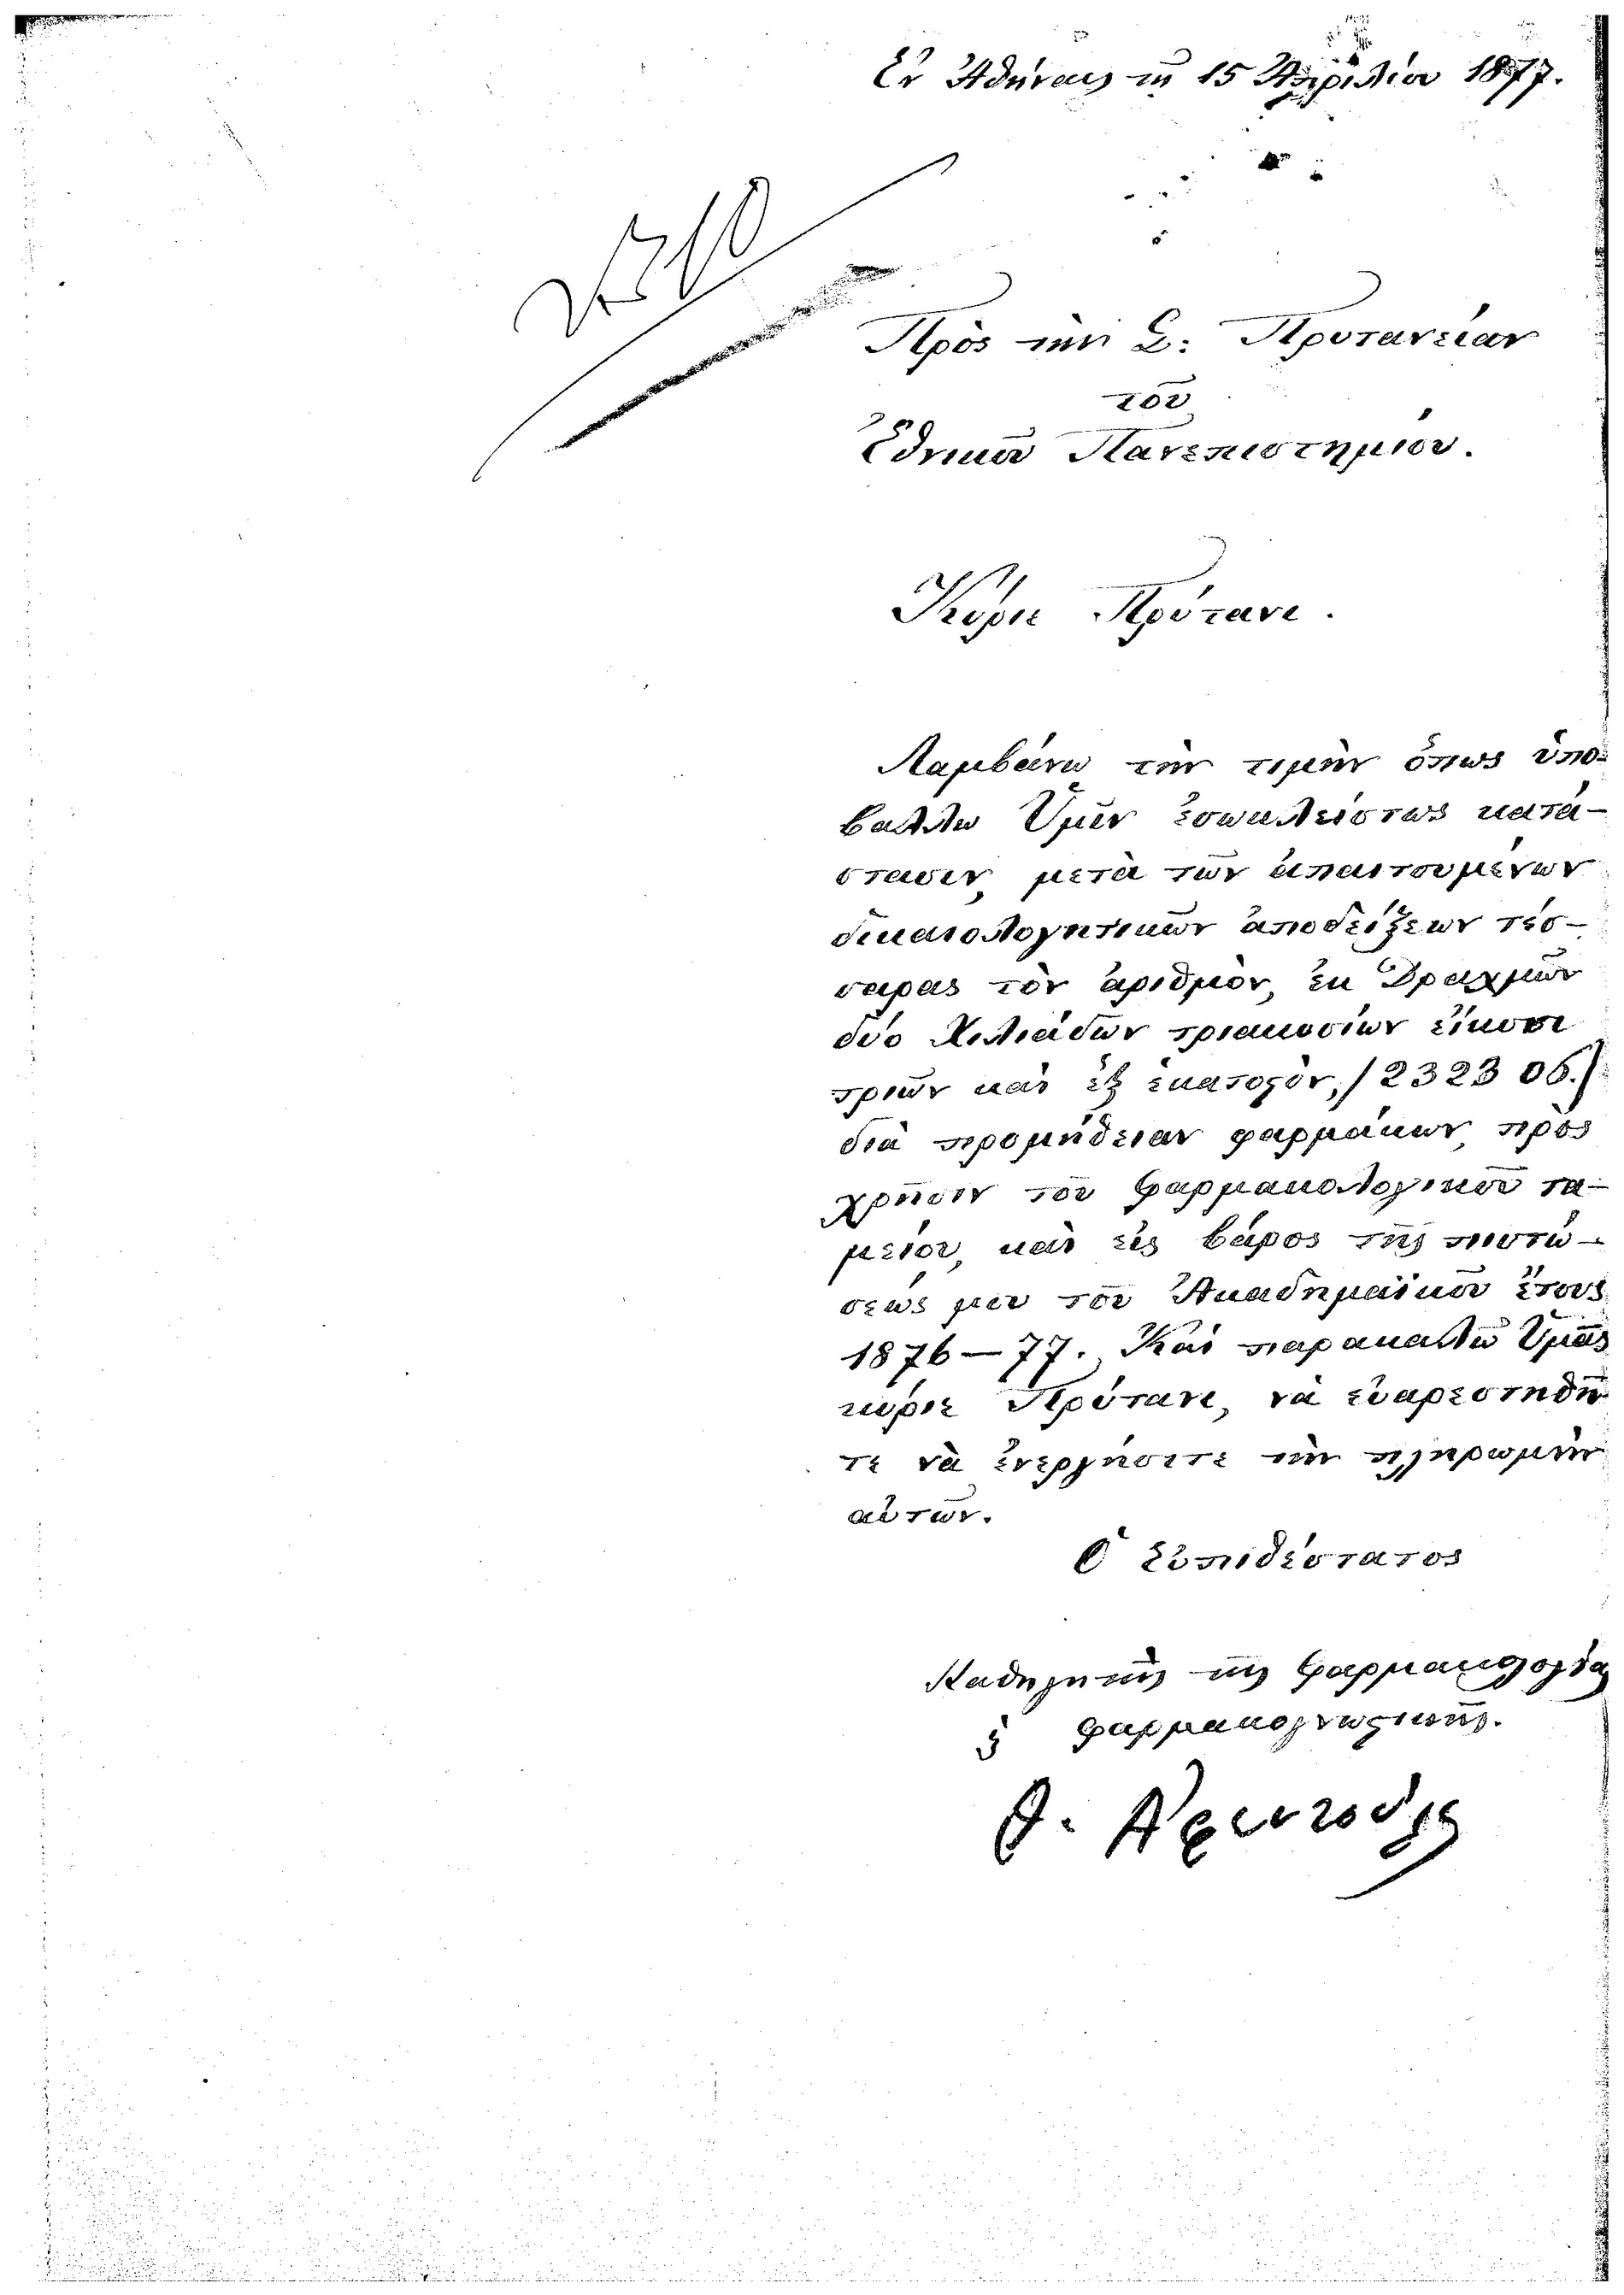 Ἐν Ἀθήναις τῇ 15 Ἀπριλίου 1877.
Πρὸς τὴν Σ: Πρυτανείαν
τοῦ
Ἐθνικοῦ Πανεπιστημίου.
Κύριε Πρύτανι.
Λαμβάνω τὴν τιμὴν ὅπως ὑπο-
βάλλω Ὑμῖν ἐσωκλείστως κατά-
στασιν, μετὰ τῶν ἀπαιτουμένων
δικαιολογητικῶν ἀποδείξεων τέσ-
σαρας τὸν ἀριθμὸν, ἐκ Δραχμῶν
δύο Χιλιάδων τριακοσίων εἴκοσι
τριῶν καὶ ἓξ ἑκατοστὸν, (2323 06.)
διὰ προμήθειαν φαρμάκων, πρὸς
χρῆσιν τοῦ Φαρμακολογικοῦ τα-
μείου, καὶ εἰς βάρος τῆς πιστώ-
σεώς μου τοῦ Ἀκαδημαϊκοῦ ἔτους
1876—77. Καὶ παρακαλῶ Ὑμᾶς
κύριε Πρύτανι, νὰ εὐαρεστηθῆ-
τε νὰ ἐνεργήσητε τὴν πληρωμὴν
αὐτῶν.
Ὁ Εὐπιθέστατος
Καθηγητὴς τῆς Φαρμακολογίας
καὶ φαρμακογνωστικῆς.
Θ. Ἀφεντούλης